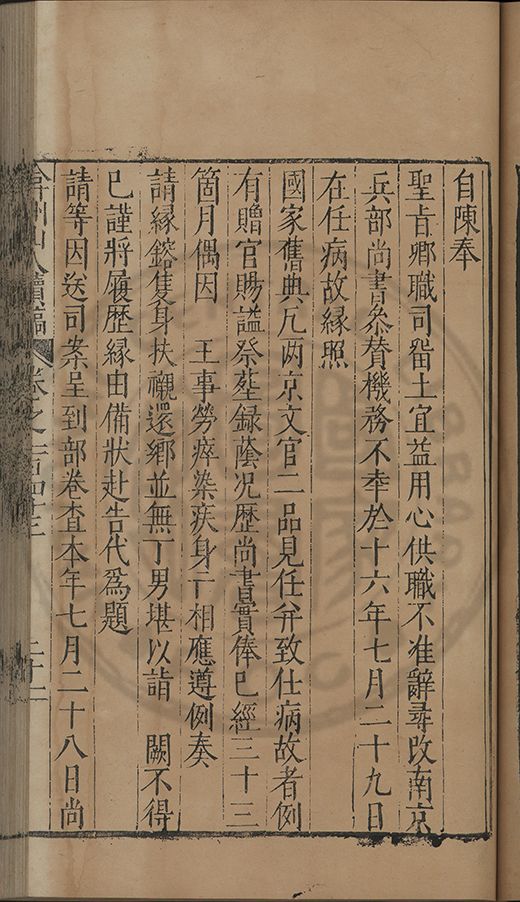 自陳奉
聖旨卿職司畱土宜益用心供職不准辭尋改南京
兵部尚書叅賛機務不幸於十六年七月二十九日
在任病故縁照
國家舊典凡两京文官二品見任并致仕病故者例
有贈官賜諡祭塟録蔭况歴尚書實俸已經三十三
箇月偶因 王事勞瘁染疾身亡相應遵例奏
請縁鎔隻身扶櫬還鄉並無丁男堪以詣 闕不得
已謹將履歴縁由備狀赴告代爲題
請等因送司案呈到部卷查本年七月二十八日尚
弇州山人續稿 卷之一百四十三 二十二